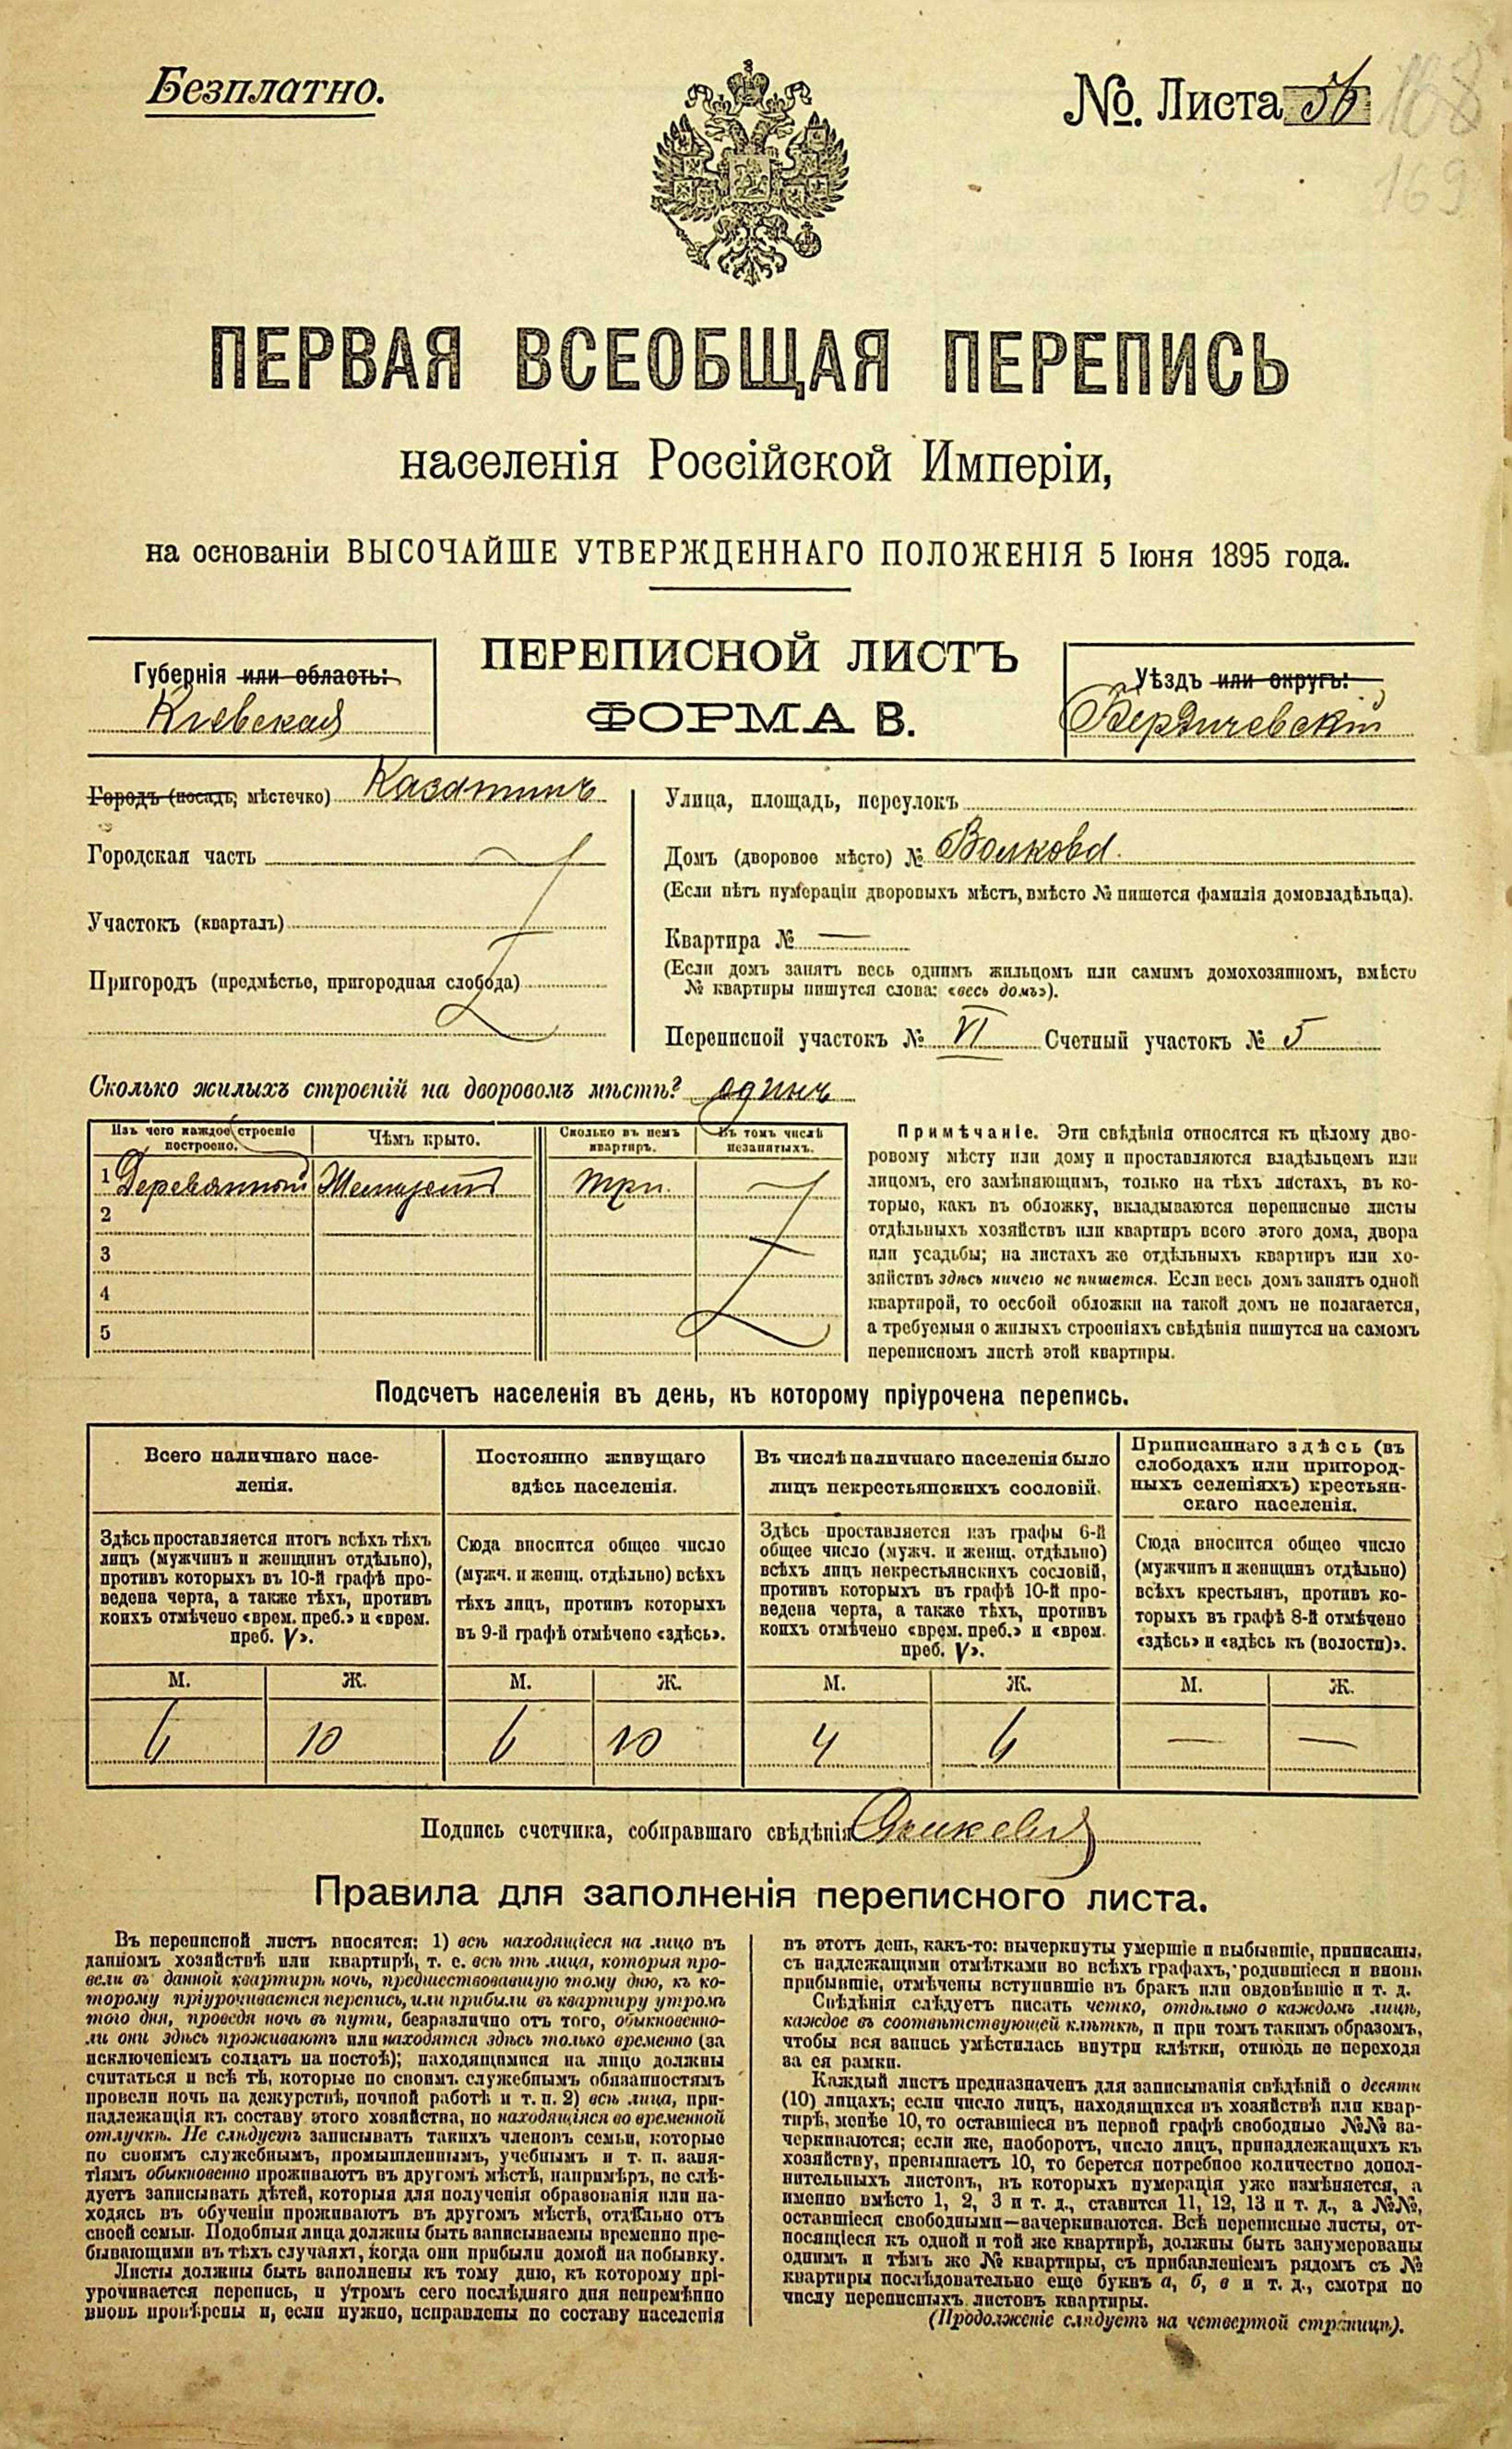 Безплатно.
№. Листа 56
168
169
ПЕРВАЯ ВСЕОБЩАЯ ПЕРЕПИСЬ
населенія Россійской Имперіи,
на основаніи ВЫСОЧАЙШЕ УТВЕРЖДЕННАГО ПОЛОЖЕНІЯ 5 Іюня 1895 года.
Губернія или область:
Кіевская
ПЕРЕПИСНОЙ ЛИСТЪ
ФОРМА В.
Уѣздъ или округъ:
Бердичевскій
Городъ (посадъ, мѣстечко) Казатинъ
Городская часть
Участокъ (кварталъ)
Пригородъ (предмѣстье, пригородная слобода)
Улица, площадь, переулокъ
Домъ (дворовое мѣсто) № Волкова.
(Если нѣтъ нумераціи дворовыхъ мѣстъ, вмѣсто № пишется фамилія домовладѣльца).
Квартира № —
(Если домъ занятъ весь однимъ жильцомъ или самимъ домохозяиномъ, вмѣсто
№ квартиры пишутся слова: «весь домъ»).
Переписной участокъ № VI Счетный участокъ № 5
Сколько жилыхъ строеній на дворовомъ мѣстѣ? одинъ
Изъ чего каждое строеніе
построено.
Чѣмъ крыто.
Сколько въ немъ
квартиръ.
Въ томъ числѣ
незанятыхъ.
1 три.
2
3
4
5
Примѣчаніе. Эти свѣдѣнія относятся къ цѣлому дво-
ровому мѣсту или дому и проставляются владѣльцемъ или
лицомъ, его замѣняющимъ, только на тѣхъ листахъ, въ ко-
торые, какъ въ обложку, вкладываются переписные листы
отдѣльныхъ хозяйствъ или квартиръ всего этого дома, двора
или усадьбы; на листахъ же отдѣльныхъ квартиръ или хо-
зяйствъ здѣсь ничего не пишется. Если весь домъ занятъ одной
квартирой, то особой обложки на такой домъ не полагается,
а требуемыя о жилыхъ строеніяхъ свѣдѣнія пишутся на самомъ
переписномъ листѣ этой квартиры.
Подсчетъ населенія въ день, къ которому пріурочена перепись.
Всего наличнаго насе-
ленія.
Постоянно живущаго
здѣсь населенія.
Въ числѣ наличнаго населенія было
лицъ некрестьянскихъ сословій.
Приписаннаго здѣсь (въ
слободахъ или пригород-
ныхъ селеніяхъ) крестьян-
скаго населенія.
Здѣсь проставляется итогъ всѣхъ тѣхъ
лицъ (мужчинъ и женщинъ отдѣльно),
противъ которыхъ въ 10-й графѣ про-
ведена черта, а также тѣхъ, противъ
коихъ отмѣчено «врем. преб.» и «врем.
преб. V».
Сюда вносится общее число
(мужч. и женщ. отдѣльно) всѣхъ
тѣхъ лицъ, противъ которыхъ
въ 9-й графѣ отмѣчено «здѣсь».
Здѣсь проставляется изъ графы 6-й
общее число (мужч. и женщ. отдѣльно)
всѣхъ лицъ некрестьянскихъ сословій,
противъ которыхъ въ графѣ 10-й про-
ведена черта, а также тѣхъ, противъ
коихъ отмѣчено «врем. преб.» и «врем.
преб. V».
Сюда вносится общее число
(мужчинъ и женщинъ отдѣльно)
всѣхъ крестьянъ, противъ ко-
торыхъ въ графѣ 8-й отмѣчено
«здѣсь» и «здѣсь къ (волости)».
М. Ж. М. Ж. М. Ж. М. Ж.
6 10 6 10 4 6 — —
Подпись счетчика, собиравшаго свѣдѣнія
Правила для заполненія переписного листа.
Въ переписной листъ вносятся: 1) всѣ находящіеся на лицо въ
данномъ хозяйствѣ или квартирѣ, т. е. всѣ тѣ лица, которыя про-
вели въ данной квартирѣ ночь, предшествовавшую тому дню, къ ко-
торому пріурочивается перепись, или прибыли въ квартиру утромъ
того дня, проведя ночь въ пути, безразлично отъ того, обыкновенно-
ли они здѣсь проживаютъ или находятся здѣсь только временно (за
исключеніемъ солдатъ на постоѣ); находящимися на лицо должны
считаться и всѣ тѣ, которые по своимъ служебнымъ обязанностямъ
провели ночь на дежурствѣ, ночной работѣ и т. п. 2) всѣ лица, при-
надлежащія къ составу этого хозяйства, но находящіяся во временной
отлучкѣ. Не слѣдуетъ записывать такихъ членовъ семьи, которые
по своимъ служебнымъ, промышленнымъ, учебнымъ и т. п. заня-
тіямъ обыкновенно проживаютъ въ другомъ мѣстѣ, напримѣръ, не слѣ-
дуетъ записывать дѣтей, которыя для полученія образованія или на-
ходясь въ обученіи проживаютъ въ другомъ мѣстѣ, отдѣльно отъ
своей семьи. Подобныя лица должны быть записываемы временно пре-
бывающими въ тѣхъ случаяхъ, когда они прибыли домой на побывку.
Листы должны быть заполнены къ тому дню, къ которому прі-
урочивается перепись, и утромъ сего послѣдняго дня непремѣнно
вновь провѣрены и, если нужно, исправлены по составу населенія
въ этотъ день, какъ-то: вычеркнуты умершіе и выбывшіе, приписаны,
съ надлежащими отмѣтками во всѣхъ графахъ, родившіеся и вновь
прибывшіе, отмѣчены вступившіе въ бракъ или овдовѣвшіе и т. д.
Свѣдѣнія слѣдуетъ писать четко, отдѣльно о каждомъ лицѣ,
каждое въ соотвѣтствующей клѣткѣ, и при томъ такимъ образомъ,
чтобы вся запись умѣстилась внутри клѣтки, отнюдь не переходя
за ея рамки.
Каждый листъ предназначенъ для записыванія свѣдѣній о десяти
(10) лицахъ; если число лицъ, находящихся въ хозяйствѣ или квар-
тирѣ, менѣе 10, то оставшіеся въ первой графѣ свободные №№ за-
черкиваются; если же, наоборотъ, число лицъ, принадлежащихъ къ
хозяйству, превышаетъ 10, то берется потребное количество допол-
нительныхъ листовъ, въ которыхъ нумерація уже измѣняется, а
именно вмѣсто 1, 2, 3 и т. д., ставится 11, 12, 13 и т. д., а №№,
оставшіеся свободными—зачеркиваются. Всѣ переписные листы, от-
носящіеся къ одной и той же квартирѣ, должны быть занумерованы
однимъ и тѣмъ же № квартиры, съ прибавленіемъ рядомъ съ №
квартиры послѣдовательно еще буквъ а, б, в и т. д., смотря по
числу переписныхъ листовъ квартиры.
(Продолженіе слѣдуетъ на четвертой страницѣ).